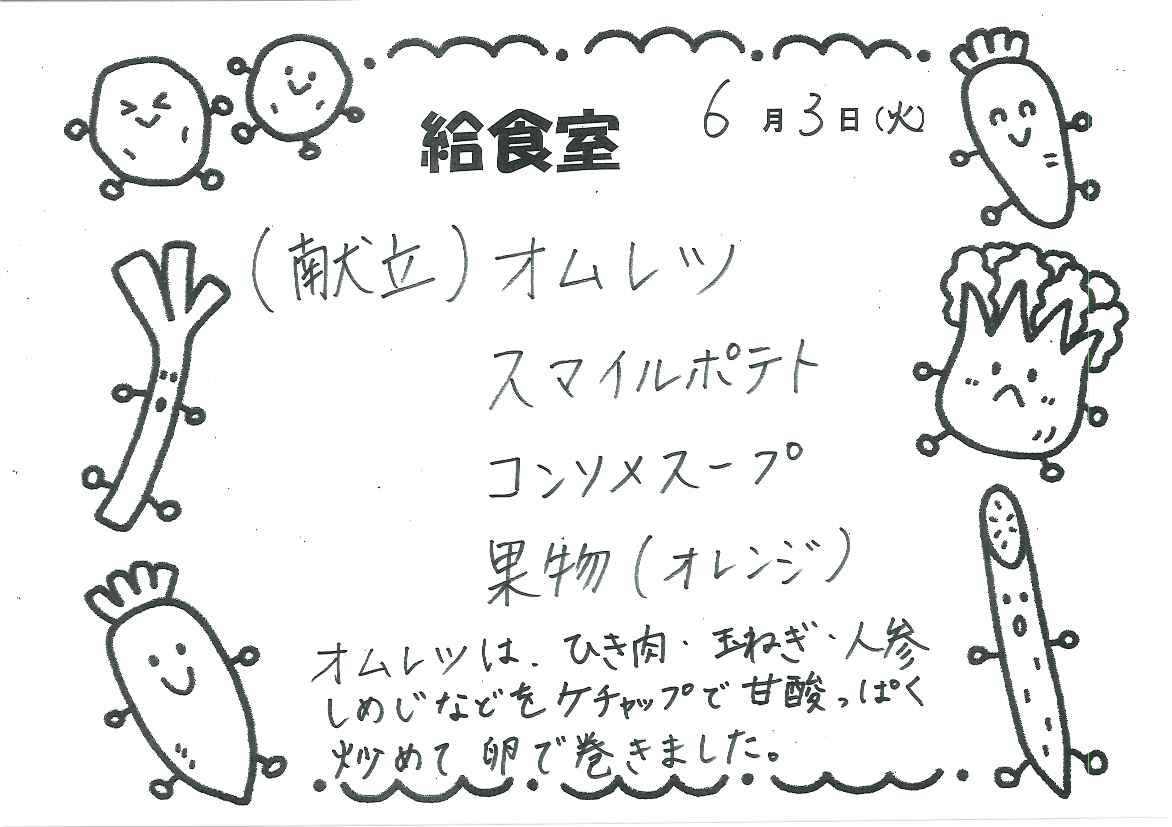 給食室 6月3日(火)
(献立)オムレツ
スマイルポテト
コンソメスープ
果物(オレンジ)
オムレツは、ひき肉・玉ねぎ・人参
しめじなどをケチャップで甘酸っぱく
炒めて卵で巻きました。